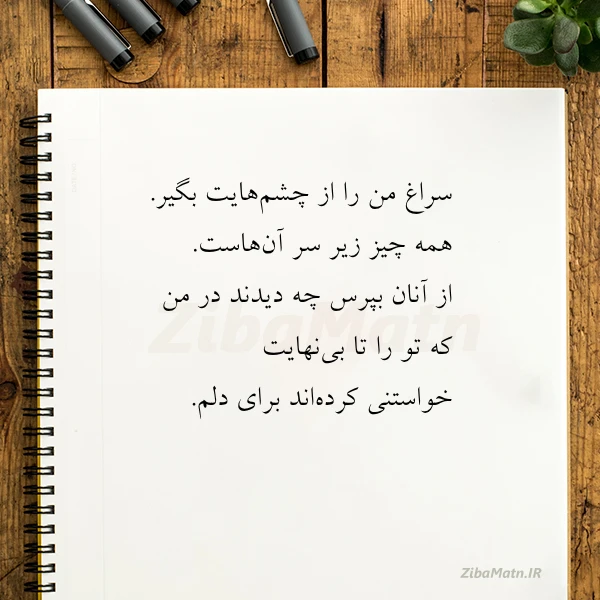 سراغ من را از چشم‌هایت بگیر.
همه چیز زیر سر آن‌هاست.
از آنان بپرس چه دیدند در من
که تو را تا بی‌نهایت
خواستنی کرده‌اند برای دلم.
ZibaMatn
ZibaMatn.IR